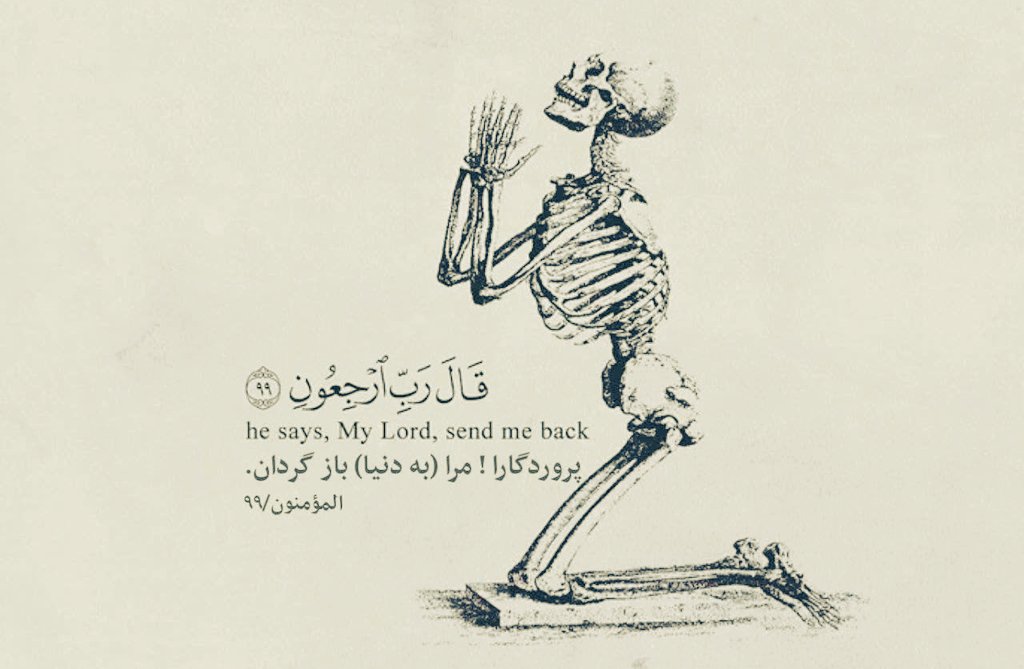 قَالَ رَبِّ ٱرْجِعُونِ ۝٩٩
he says, My Lord, send me back
پروردگارا ! مرا (به دنیا) باز گردان.
المؤمنون/۹۹